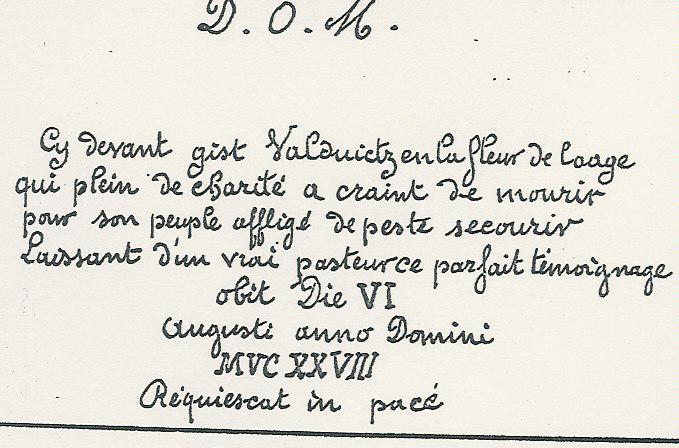 D. O. M.
Cy devant gist Valduictz en la fleur de laage
qui plein de charité a craint de mourir
pour son peuple affligé de peste secourir
Laissant d'un vrai pasteur ce parfait témoignage
obit Die VI
Augusti anno Domini
MVC XXVIII
Réquiescat in pacé